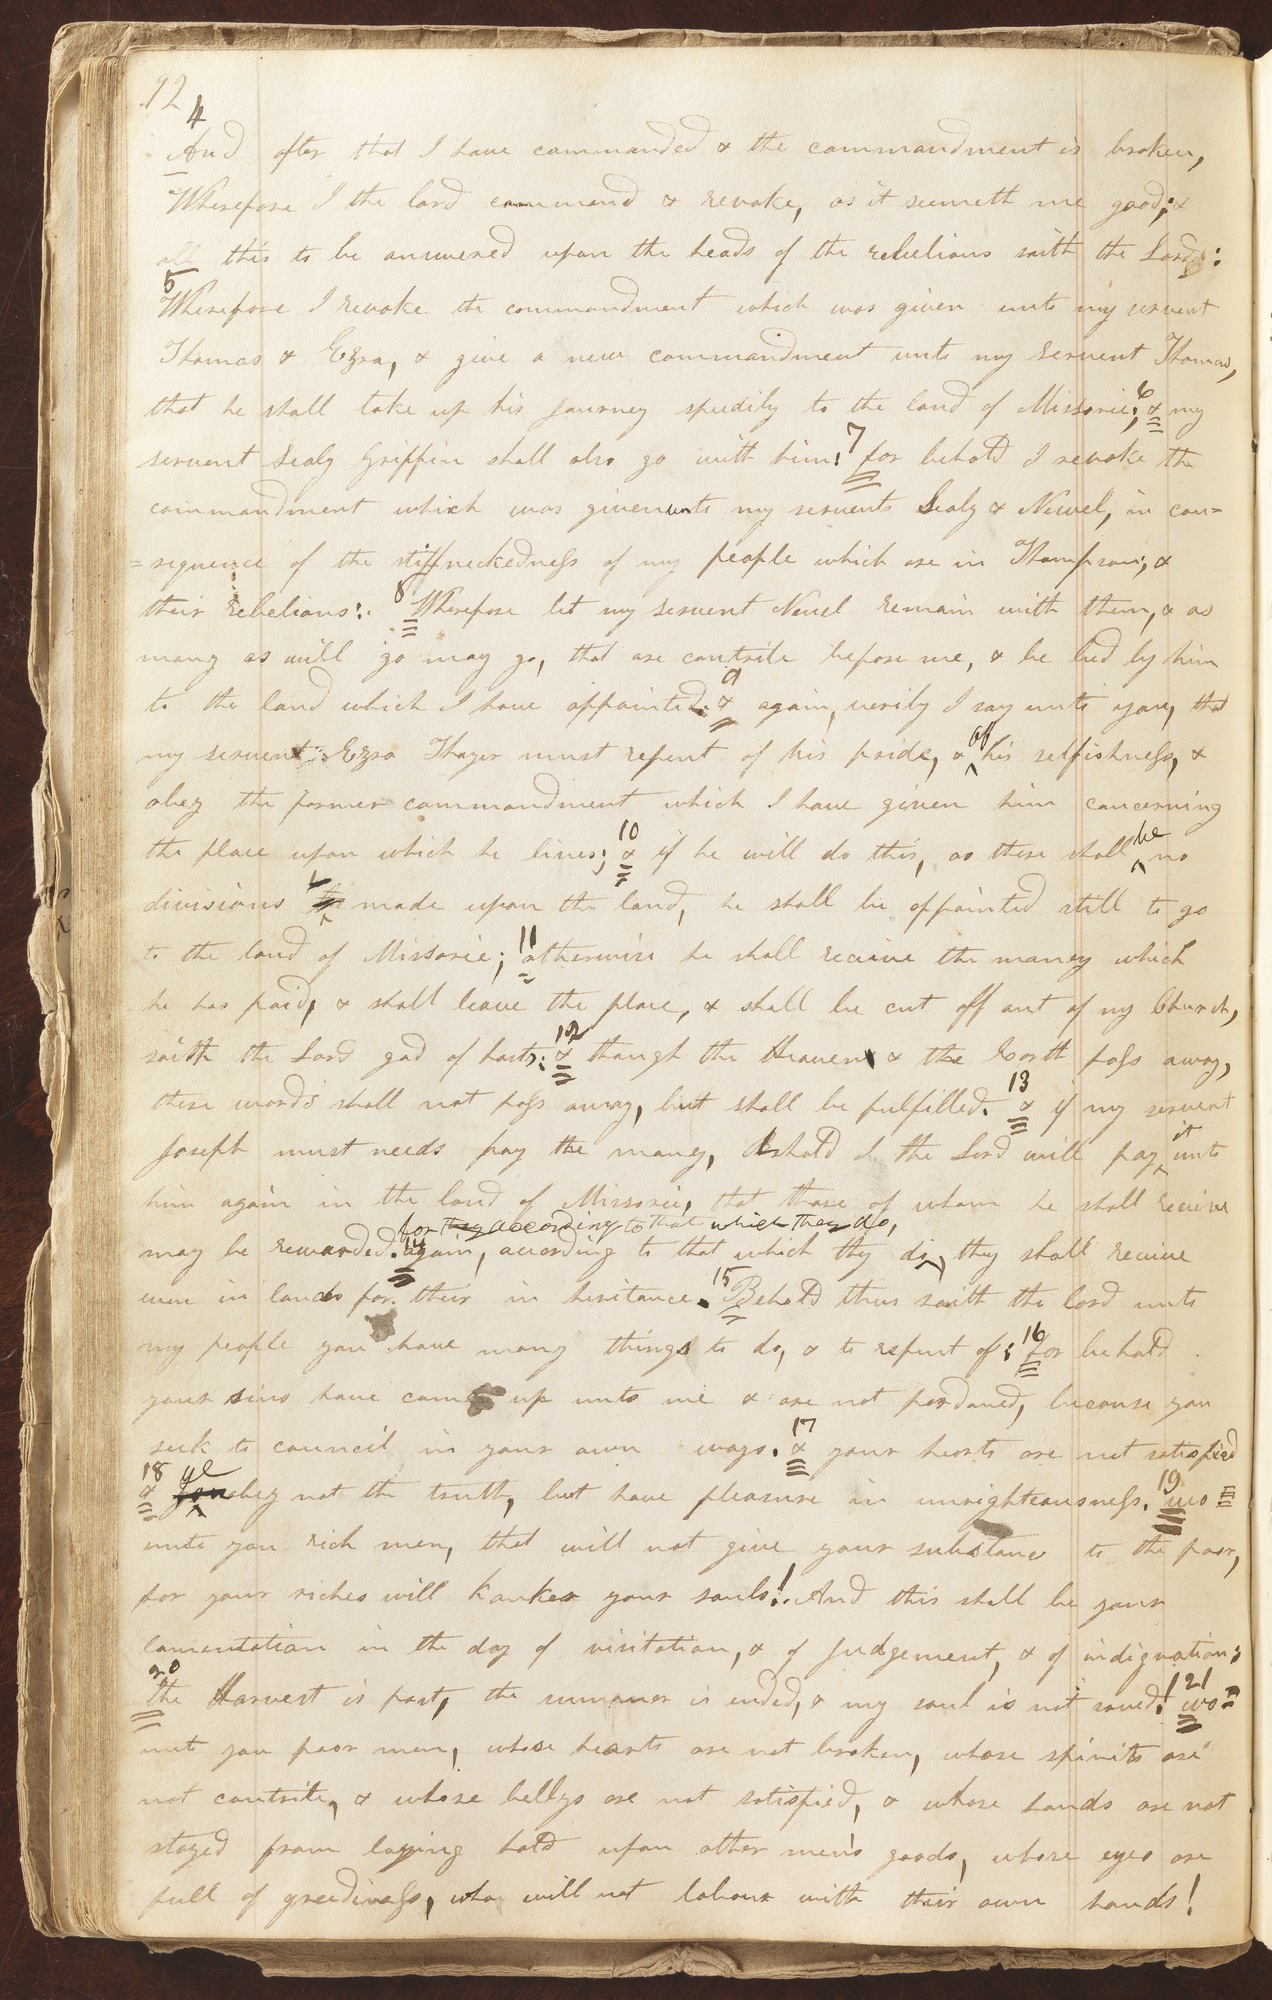 92
4
And after that I have commanded & the commandment is broken,
Wherefore I the lord command & revoke, as it seemeth me good; &
all this to be answered upon the heads of the rebelious saith the Lord:
5
Wherefore I revoke the commandment which was given unto my servent
Thomas & Ezra, & give a new commandment unto my servent Thomas,
that he shall take up his Journey speedily to the land of Missorie; 6 & my
servent Sealy Griffin shall also go with him: 7 for behold I revoke the
commandment which was given unto my servents Sealy & Newel, in con=
=sequence of the stiffneckedness of my people which are in Thompson; &
their rebelions: 8 Wherefore let my servent Newel remain with them, & as
many as will go may go, that are contrite before me, & be led by him
to the land which I have appointed. 9 & again, verily I say unto you, that
my servent Ezra Thayer must repent of his pride, & of his selfishness, &
obey the former commandment which I have given him concerning
the place upon which he lives; 10 & if he will do this, as there shall be no
divisions made upon the land, he shall be appointed still to go
to the land of Missorie; 11 otherwise he shall receive the money which
he has paid, & shall leave the place, & shall be cut off out of my Church,
saith the Lord god of hosts: 12 & though the Heaven & the Earth pass away,
these words shall not pass away, but shall be fulfilled. 13 & if my servent
Joseph must needs pay the money, behold I the Lord will pay it unto
him again in the land of Missorie, that those of whom he shall receive
for they according to that which they do,
may be rewarded. 14 again, according to that which they do, they shall receive
even in lands for their in heritance. 15 Behold thus saith the lord unto
my people you have many things to do, & to repent of; 16 for behold
your sins have come up unto me & are not pardoned, because you
seek to council in your own ways. 17 & your hearts are not satisfied
18 & ye you obey not the truth, but have pleasure in unrighteousness. 19 wo
unto you rich men, that will not give your substance to the poor,
for your riches will kanker your souls! And this shall be your
lamentation in the day of visitation, & of Judgement, & of indignation;
20
the Harvest is past, the summer is ended, & my soul is not saved! 21 wo
unto you poor men, whose hearts are not broken, whose spirits are
not contrite, & whose bellys are not satisfied, & whose hands are not
stayed from laying hold upon other men's goods, whose eyes are
full of greediness, who will not labour with their own hands!